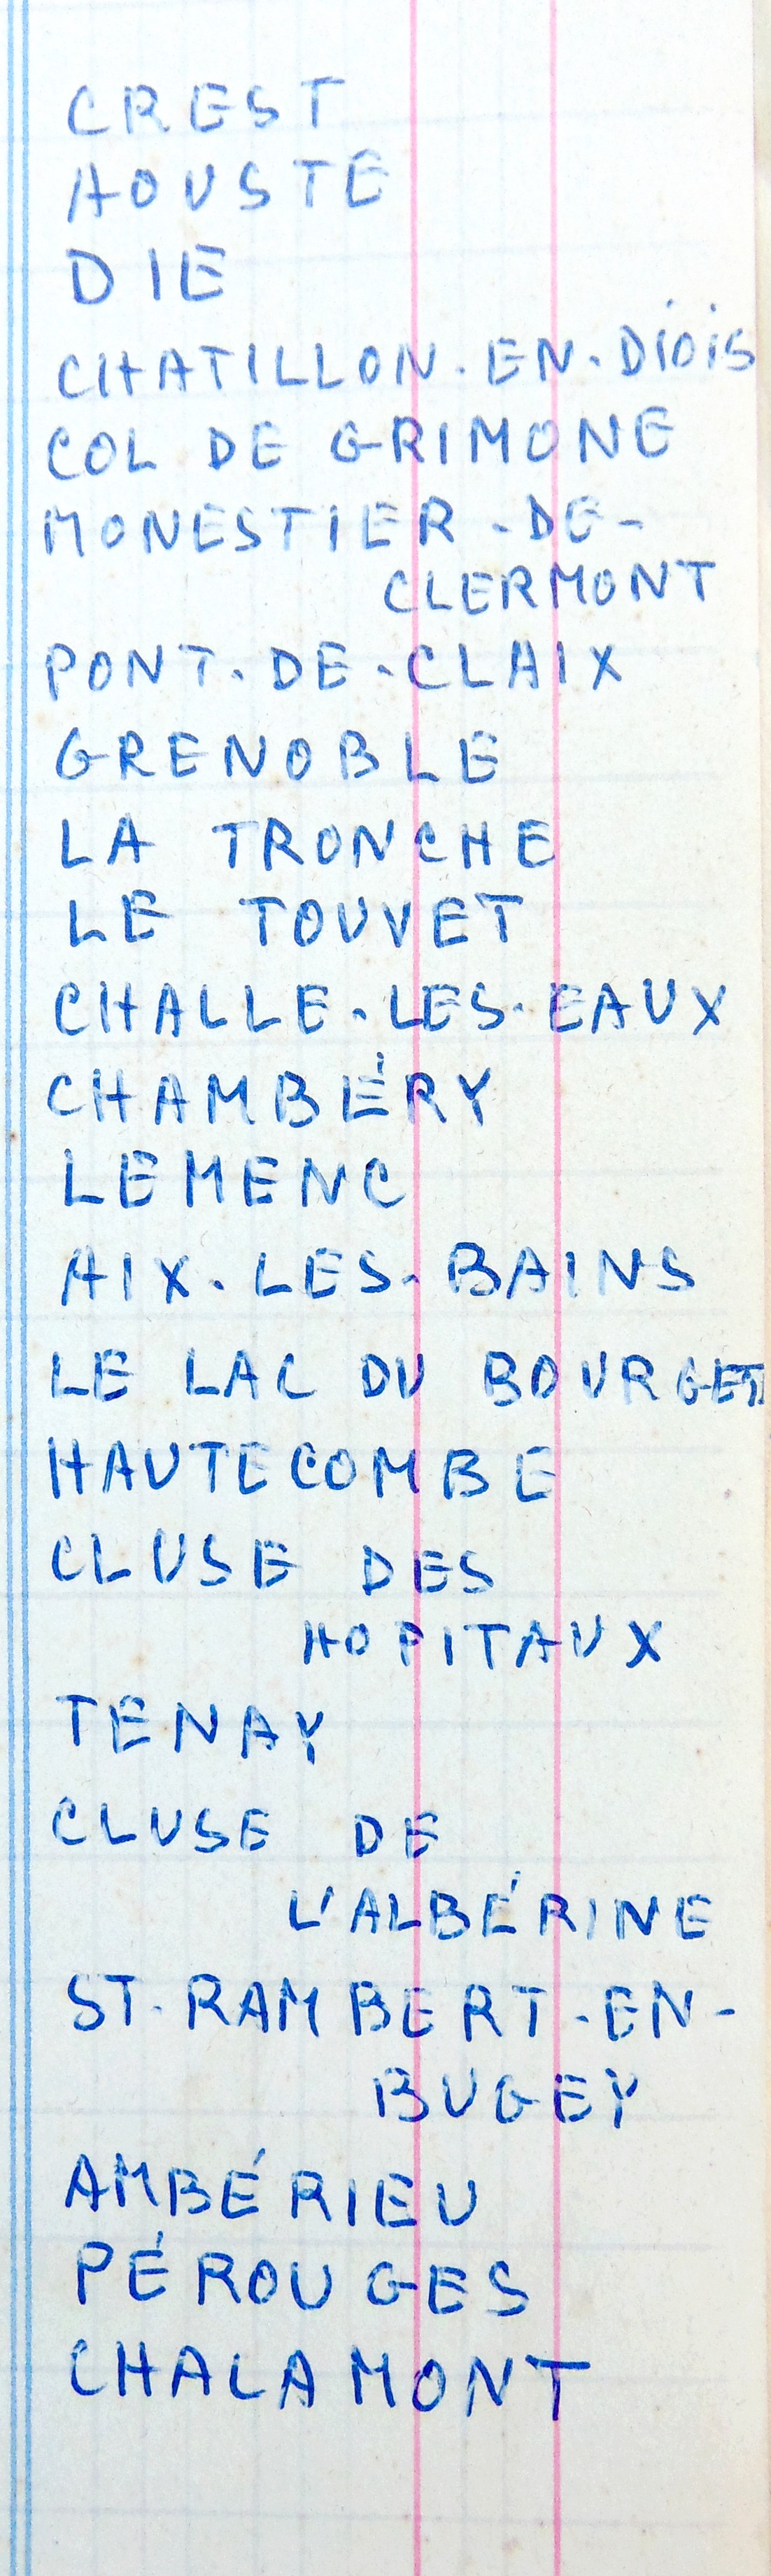 CREST
AOUSTE
DIE
CHATILLON-EN-DIOIS
COL DE GRIMONE
MONESTIER-DE-
CLERMONT
PONT-DE-CLAIX
GRENOBLE
LA TRONCHE
LE TOUVET
CHALLE-LES-EAUX
CHAMBÉRY
LEMENC
AIX-LES-BAINS
LE LAC DU BOURGET
HAUTECOMBE
CLUSE DES
HOPITAUX
TENAY
CLUSE DE
L'ALBÉRINE
ST-RAMBERT-EN-
BUGEY
AMBÉRIEU
PÉROUGES
CHALAMONT